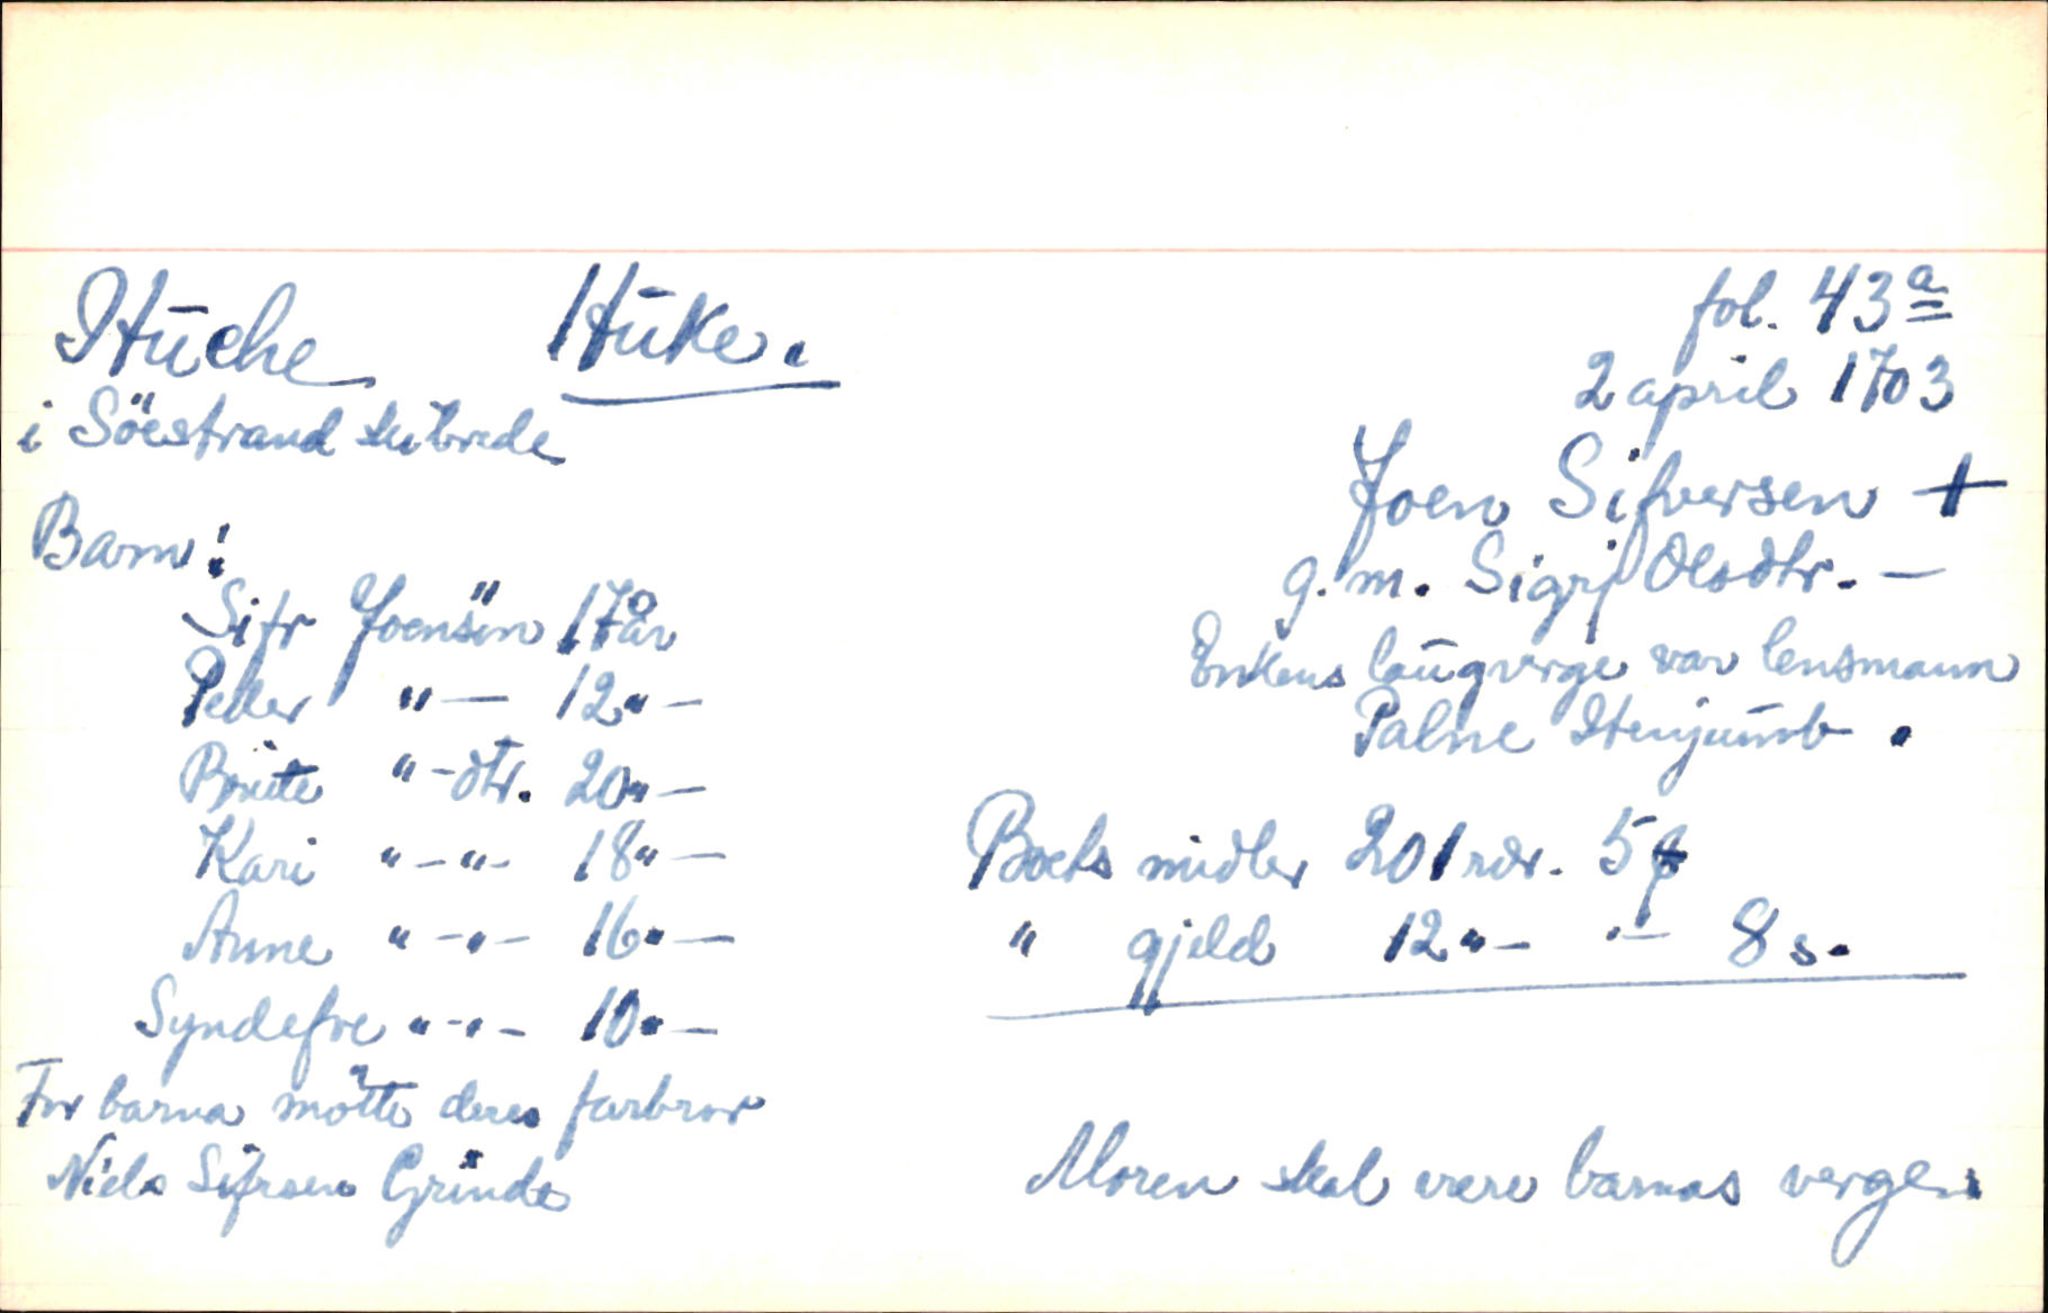 Huche Huke.
i Söestrand skibrede
fol. 43a
2 april 1703
Joen Sifversen +
g. m. Sigrj Olsdtr. —
Enkens laugverge var lensmann
Palne Henjumb.
Barn:
Sifr Joensön 17 år
Peder " — 12 " —
Brite " - dtr. 20 " —
Kari " - " - 18 " —
Anne " - " - 16 " —
Syndefve " - " - 10 " —
For barna mötte deres farbror
Niels Sifrsen Grinde
Boets midler 201 rdr. 5
" gjeld 12 " - " - 8 s.
Moren skal vere barnas verge.